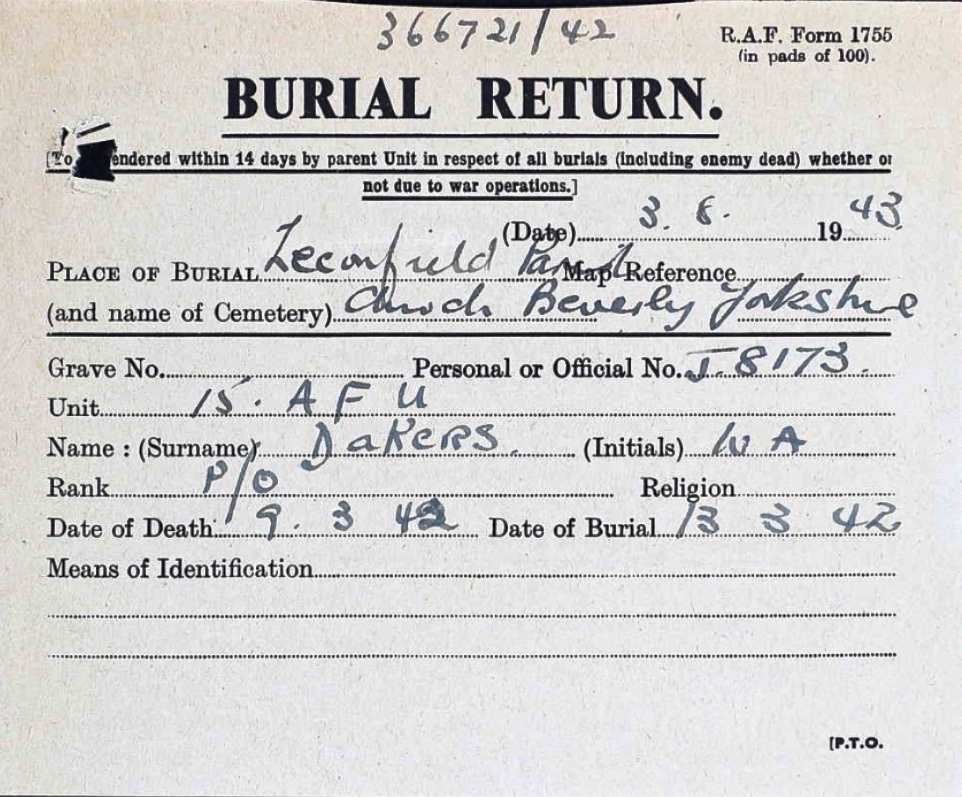 366721/42
R.A.F. Form 1755
(in pads of 100).
BURIAL RETURN.
[To endered within 14 days by parent Unit in respect of all burials (including enemy dead) whether or
not due to war operations.]
(Date) 3. 8. 1943.
PLACE OF BURIAL Leconfield Parish Map Reference
(and name of Cemetery) Church Beverly Yorkshire
Grave No. Personal or Official No. J. 8173.
Unit 15. A F U
Name : (Surname) DAKERS. (Initials) W A
Rank P/O Religion
Date of Death 9. 3 42 Date of Burial 13 3 42
Means of Identification
[P.T.O.